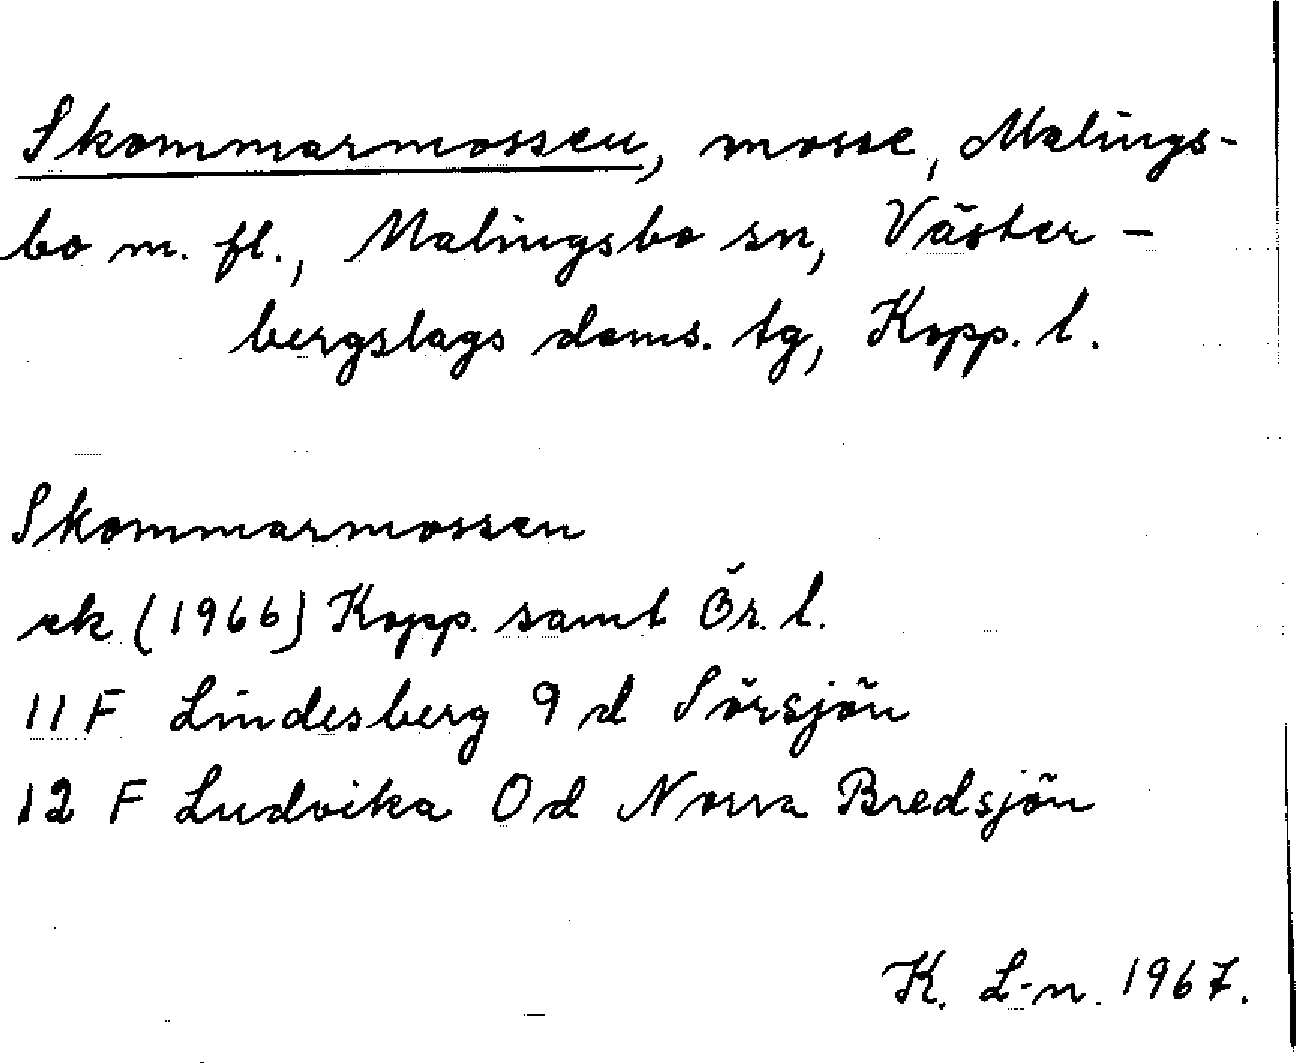 Skommarmossen, mosse, Malings-
bo m. fl., Malingsbo sn, Väster-
bergslags doms. tg, Kopp. l.
Skommarmossen
ek (1966) Kopp. samt Ör. l.
11 F Lindesberg 9 d Sörsjön
12 F Ludvika 0 d Norra Bredsjön
K. L-n. 1967.